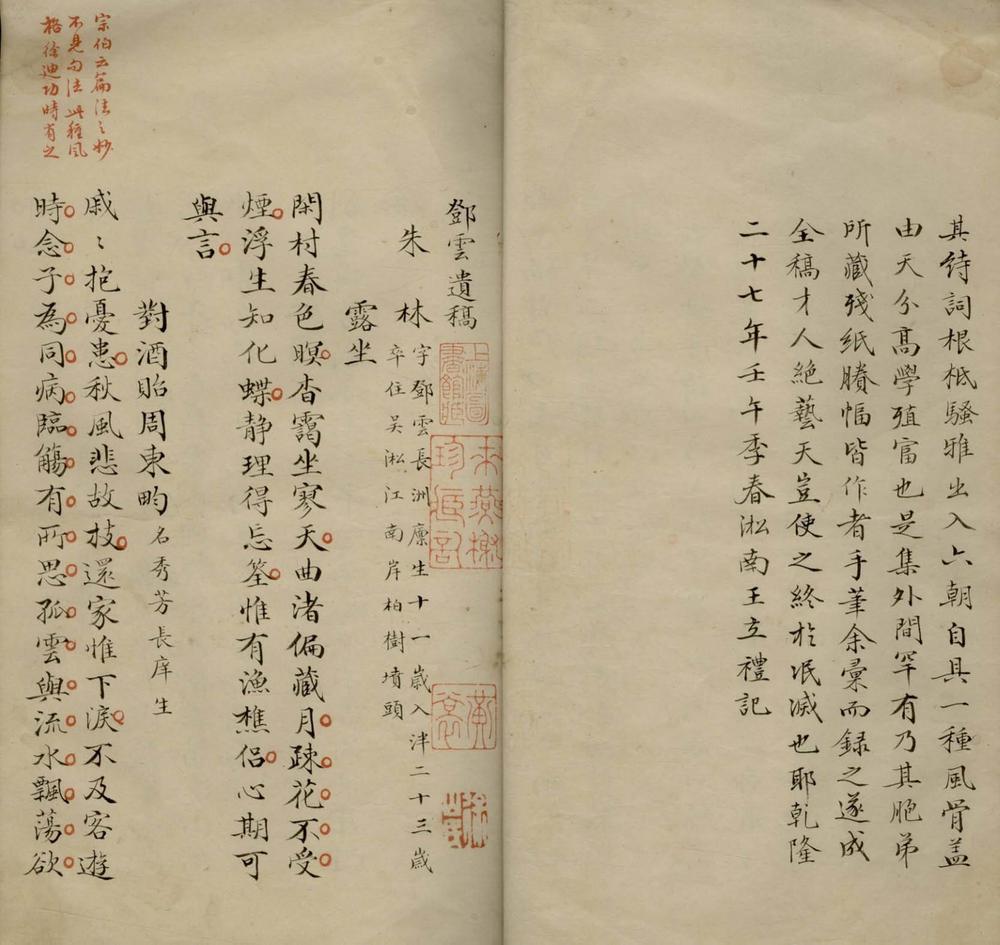 其詩詞根柢騷雅出入六朝自具一種風骨蓋
由天分髙學殖富也是集外間罕有乃其胞弟
所藏殘紙賸幅皆作者手筆余彙而録之遂成
全稿才人絶藝天豈使之終於泯滅也耶乾隆
二十七年壬午季春淞南王立禮記
鄧雲遺稿
朱林
字鄧雲長洲廪生十一歳入泮二十三歳
卒住吴淞江南岸柏樹墳頭
露坐
閑村春色暝杳靄坐寥天曲渚偏藏月疎花不受
煙浮生知化蝶静理得忘筌惟有漁樵侣心期可
與言
對酒貽周東畇名秀芳長庠生
戚〻抱憂患秋風悲故枝還家惟下淚不及客遊
時念子為同病臨觴有所思孤雲與流水飄蕩欲
宗伯云篇法之妙
不見句法此種風
格徐迪功時有之
上海圖
書館藏
黄
裳